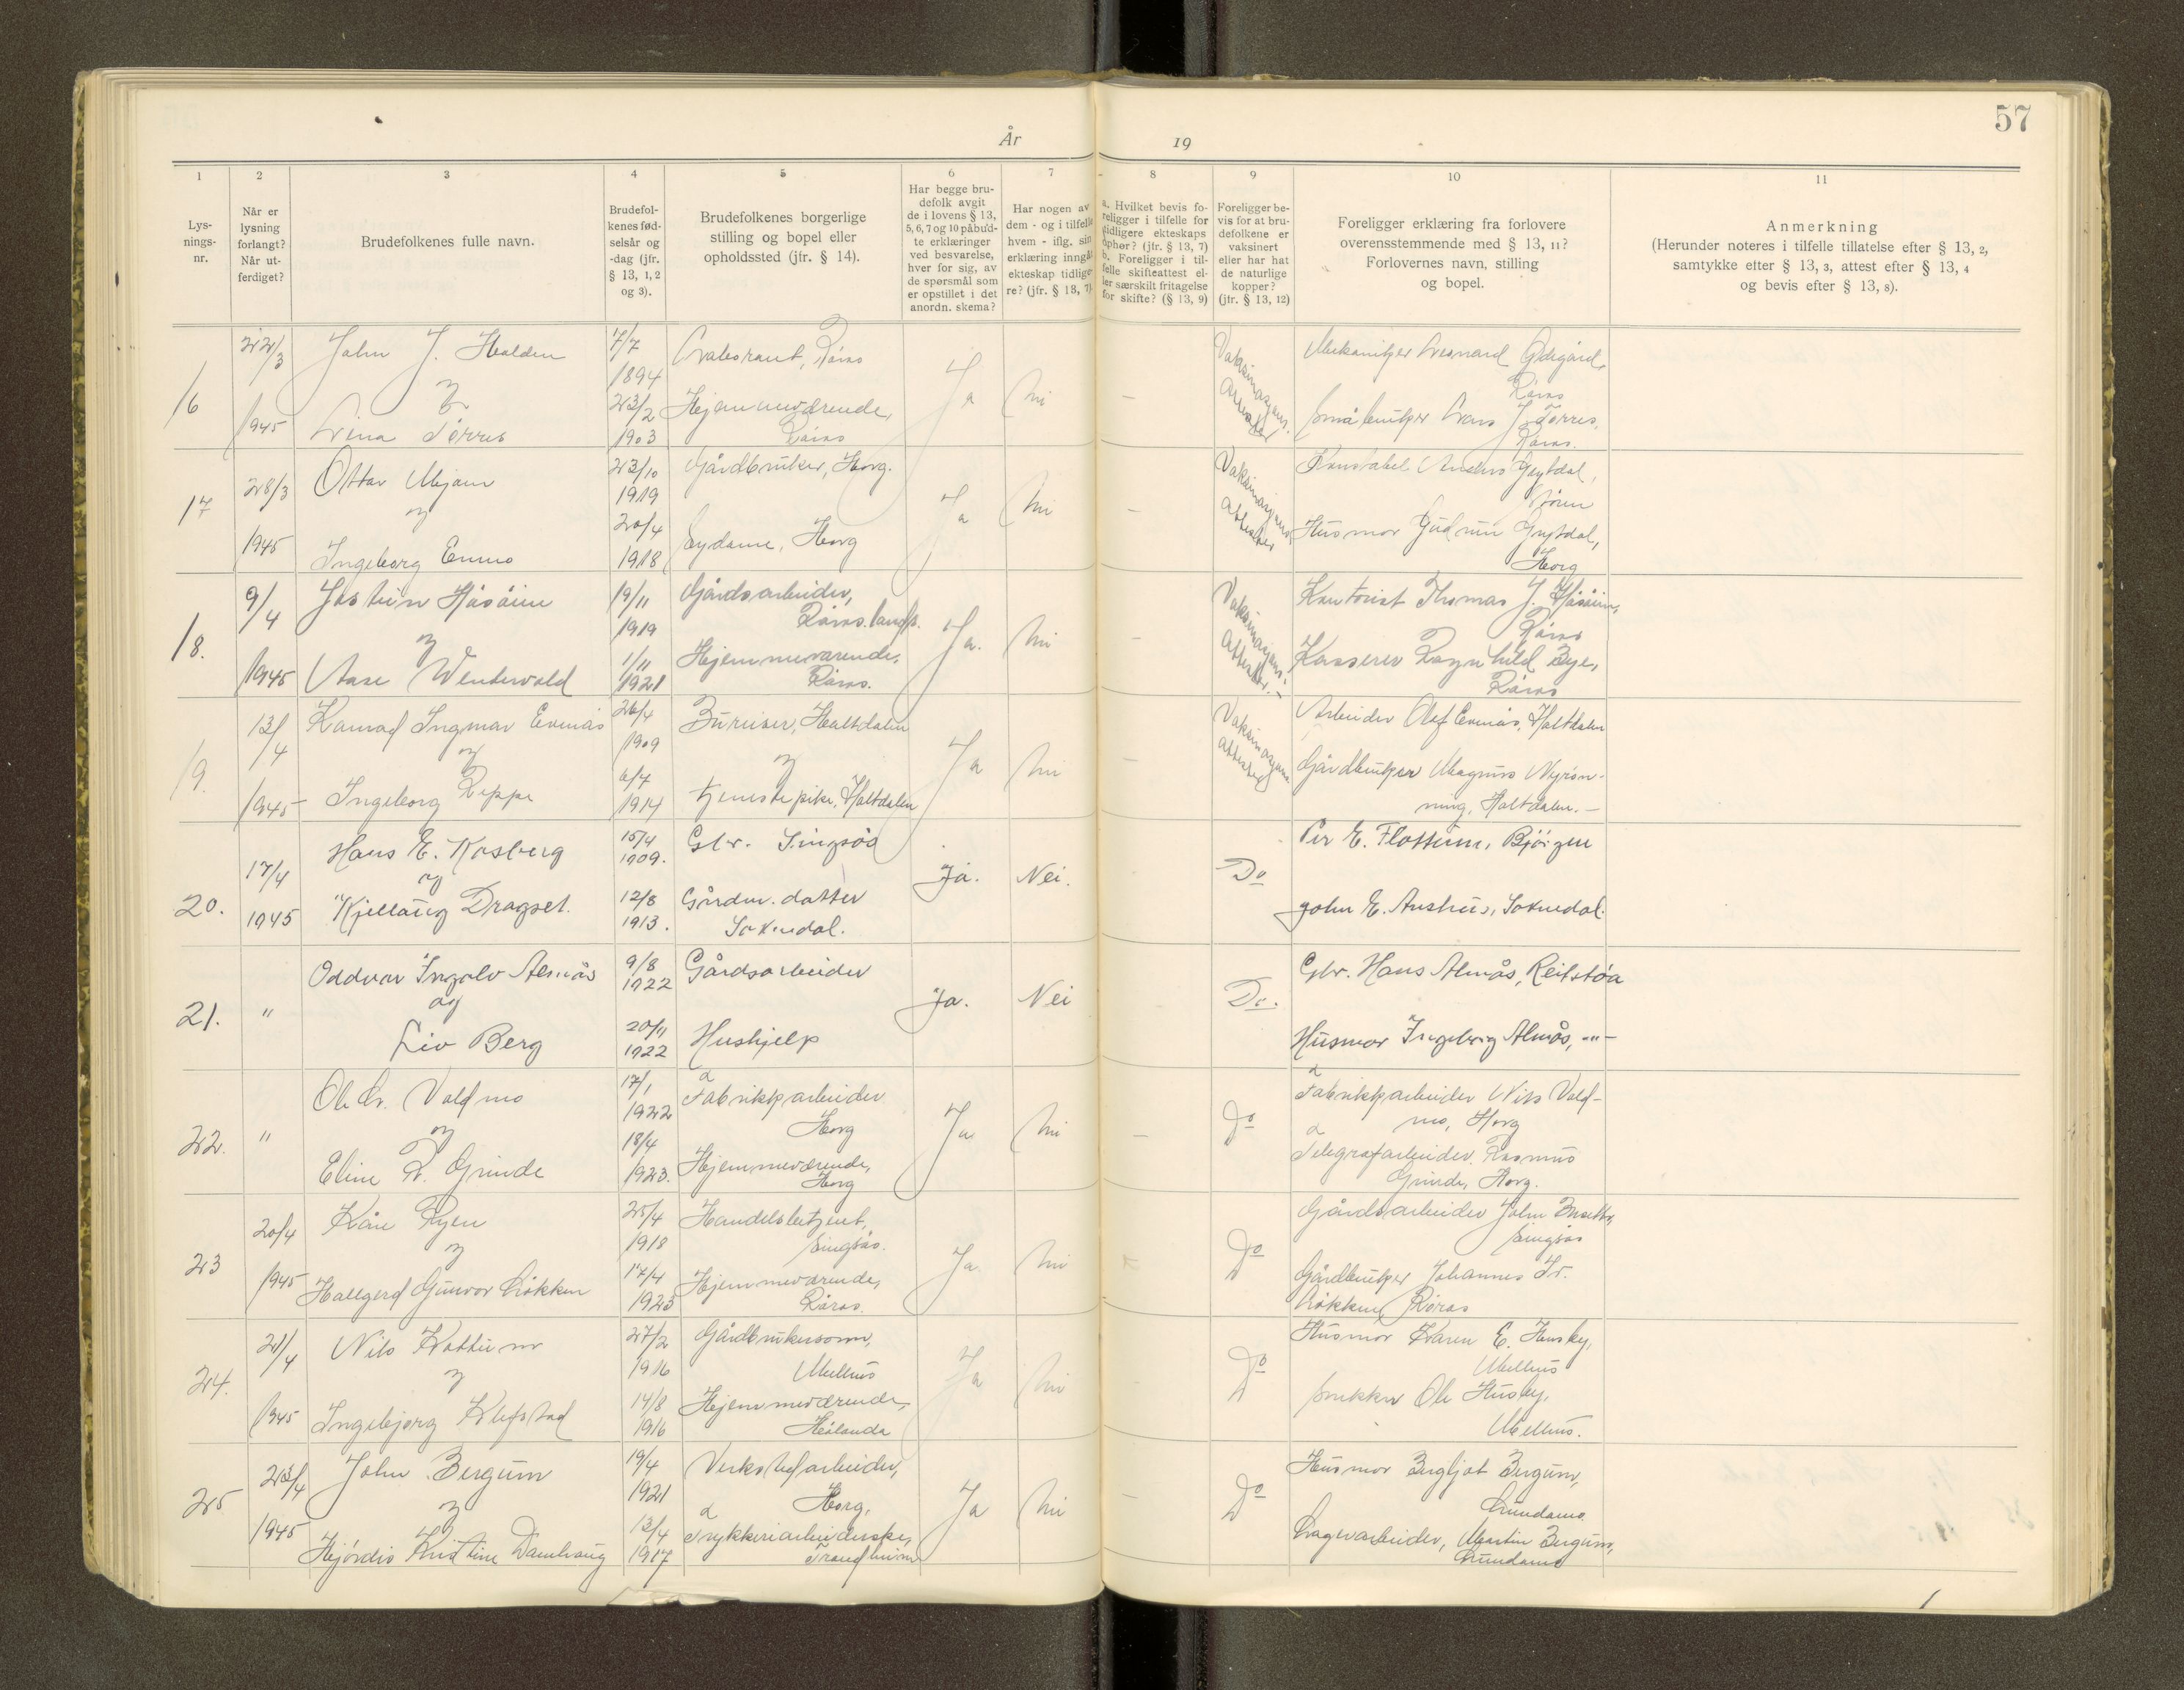 57
År 19
1
2
3
4
5
6
7
8
9
10
11
Lys-
nings-
nr.
Når er
lysning
forlangt?
Når ut-
ferdiget?
Brudefolkenes fulle navn.
Brudefol-
kenes fød-
selsår og
-dag (jfr.
§ 13, 1, 2
og 3).
Brudefolkenes borgerlige
stilling og bopel eller
opholdssted (jfr. § 14).
Har begge bru-
defolk avgit
de i lovens § 13,
5, 6, 7 og 10 påbud-
te erklæringer
ved besvarelse,
hver for sig, av
de spørsmål som
er opstillet i det
anordn. skema?
Har nogen av
dem - og i tilfelle
hvem - iflg. sin
erklæring inngåt
ekteskap tidlige-
re? (jfr. § 13, 7)
a. Hvilket bevis fo-
religger i tilfelle for
tidligere ekteskaps
ophør? (jfr. § 13, 7)
b. Foreligger i til-
felle skifteattest el-
ler særskilt fritagelse
for skifte? (§ 13, 9)
Foreligger be-
vis for at bru-
defolkene er
vaksinert
eller har hat
de naturlige
kopper?
(jfr. § 13, 12)
Foreligger erklæring fra forlovere
overensstemmende med § 13, 11?
Forlovernes navn, stilling
og bopel.
Anmerkning
(Herunder noteres i tilfelle tillatelse efter § 13, 2,
samtykke efter § 13, 3, attest efter § 13, 4
og bevis efter § 13, 8).
16
22/3
1945
John J. Halden
og
Lina Tørres
7/7
1894
23/2
1903
Røros
Hjemmeværende,
Røros
Ja
Nei
–
Vaksinasjons-
attester
Mekaniker Leonard Ødegård,
Røros
Småbruker Lars J. Tørres,
Røros.
17
28/3
1945
Ottar Mjøen
og
Ingeborg Enmo
23/10
1919
20/4
1918
Gårdbruker, Horg.
Sydame, Horg
Ja
Nei
–
Vaksinasjons-
attester
Konstabel Anders
Støren
Husmor Gudrun
Horg
18.
9/4
1945
Jostein Håsåen
og
Aase Wintervold
19/11
1919
1/11
1921
Gårdsarbeider,
Røros lands.
Hjemmeværende,
Røros.
Ja.
Nei
–
Vaksinasjons-
attester. –
Kontorist Thomas J. Håsåen,
Røros
Kasserer Ragnhild Bye,
Røros
19.
13/4
1945
Konrad Ingmar Evenås
og
Ingeborg Reppe
26/4
1909
6/4
1914
Bureiser, Haltdalen
og
tjenestepike, Haltdalen
Ja
Nei
–
Vaksinasjons
attester
Arbeider Olaf Evenås, Haltdalen
Gårdbruker Magnus Nyrøn-
ning, Haltdalen. –
20.
17/4
1945
Hans E. Kosberg
og
Kjellaug Dragset.
15/4
1909.
12/8
1913.
Gbr. Singsås
Gårdm. datter
Soknedal.
Ja.
Nei.
Do
Per E. Flottum, Bjørgen
John E. Aushus, Soknedal.
21.
"
Oddvar Ingolv Almås
og
Liv Berg
9/8
1922
20/11
1922
Gårdsarbeider
Hushjelp
Ja.
Nei
Do.
Gbr. Hans Almås, Reitstøa
Husmor Ingeborg Almås, -"-
22.
"
Ole Kr. Voldmo
og
Eline R. Grinde
17/1
1922
18/4
1923.
Fabrikkarbeider
Horg
Hjemmeværende,
Horg
Ja
Nei
–
Do
Fabrikkarbeider Nils Vold-
mo, Horg
Telegrafarbeider Rasmus
Grinde, Horg.
23
20/4
1945
Kåre Ryen
og
Hallgerd Gunvor Løkken
25/4
1918
17/4
1923
Handelsbetjent,
Singsås.
Hjemmeværende,
Røros.
Ja
Nei
Do
Gårdsarbeider John
Singsås
Gårdbruker Johannes Tr.
Løkken, Røros
24.
21/4
1945
Nils Kattum
og
Ingebjørg Klefstad
27/2
1916
14/8
1916
Gårdbrukersønn,
Melhus
Hjemmeværende,
Hølonda
Ja
Nei
Do
Husmor Karen E. Husby,
Melhus
Snekker Ole Husby,
Melhus.
25
23/4
1945
John Bergum
og
Hjørdis Kristine Damhaug
19/4
1921
13/4
1917
Verkstedarbeider,
Horg,
Trykkeriarbeiderske,
Trondheim
Ja
Nei
–
Do
Husmor Bergljot Bergum,
Lundamo
Lagerarbeider, Martin Bergum,
Lundamo